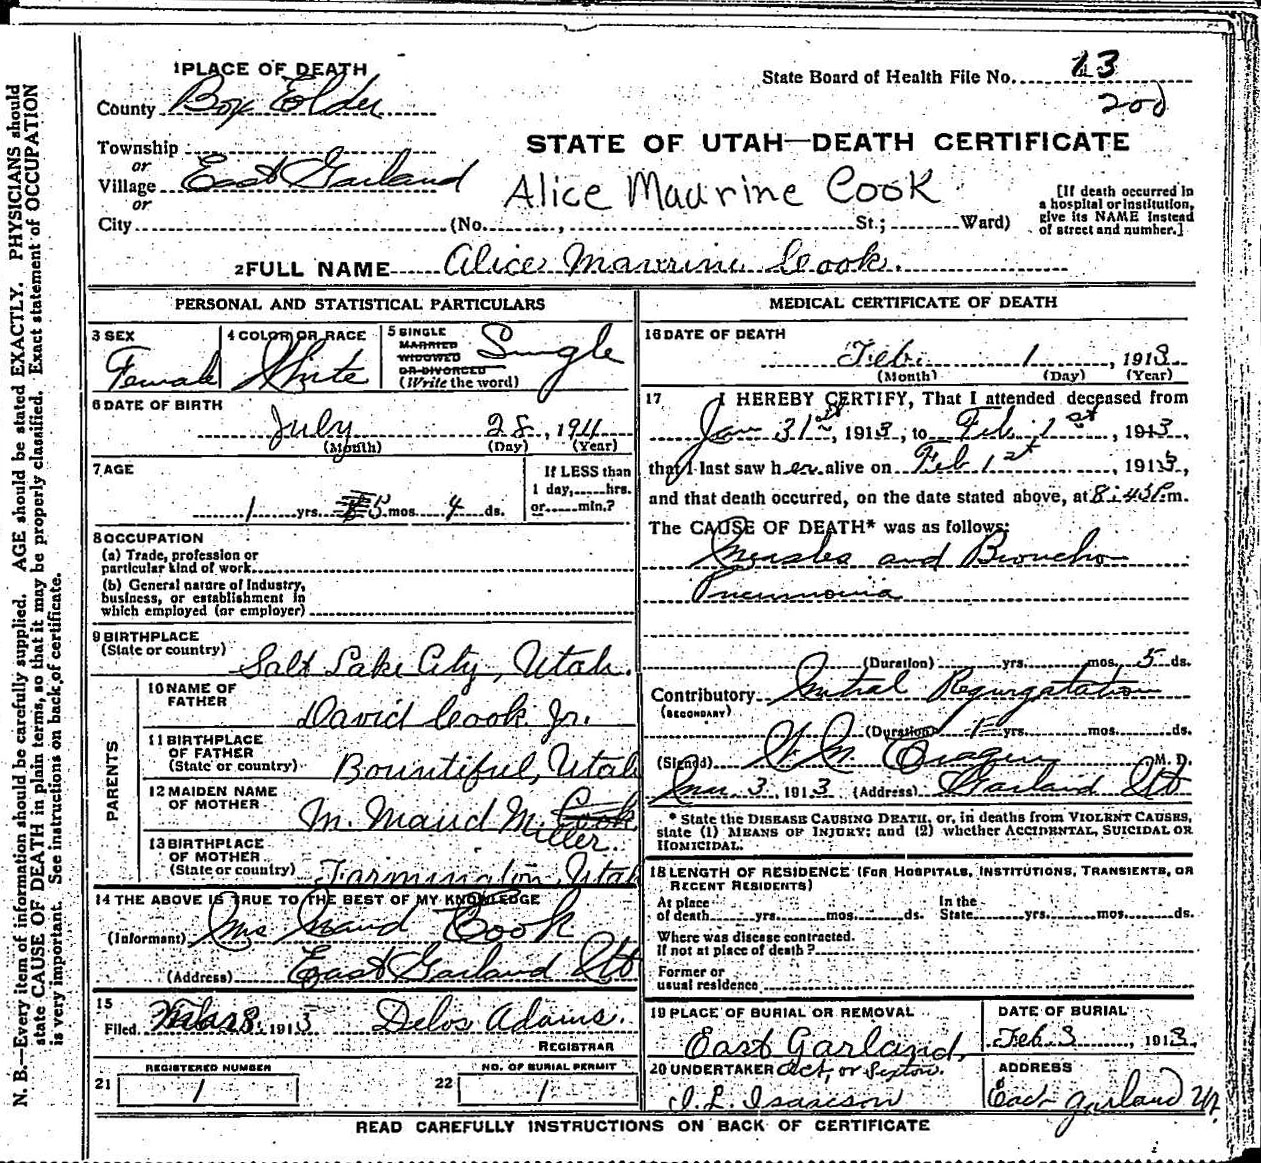 1 PLACE OF DEATH
County Box Elder
State Board of Health File No. 13
200
STATE OF UTAH—DEATH CERTIFICATE
Township
or
Village East Garland
or
Alice Maurine Cook
[If death occurred in
a hospital or institution,
give its NAME instead
of street and number.]
City (No. , St.; Ward)
2 FULL NAME Alice Mavrine Cook.
PERSONAL AND STATISTICAL PARTICULARS
3 SEX
Female
4 COLOR OR RACE
White
5 SINGLE
MARRIED
WIDOWED
OR DIVORCED
(Write the word)
Single
6 DATE OF BIRTH
July 28, 1911
(Month) (Day) (Year)
7 AGE
1 yrs. 5 mos. 4 ds.
If LESS than
1 day, hrs.
or min.?
8 OCCUPATION
(a) Trade, profession or
particular kind of work
(b) General nature of industry,
business, or establishment in
which employed (or employer)
9 BIRTHPLACE
(State or country) Salt Lake City, Utah.
PARENTS
10 NAME OF
FATHER David Cook Jr.
11 BIRTHPLACE
OF FATHER
(State or country) Bountiful, Utah
12 MAIDEN NAME
OF MOTHER M. Maud M. Cook
Miller.
13 BIRTHPLACE
OF MOTHER
(State or country) Farmington, Utah
14 THE ABOVE IS TRUE TO THE BEST OF MY KNOWLEDGE
(Informant) Mrs Maud Cook
(Address) East Garland Ut
15
Filed 1913 Delos Adams.
REGISTRAR
REGISTERED NUMBER
21 1
NO. OF BURIAL PERMIT
22 1
MEDICAL CERTIFICATE OF DEATH
16 DATE OF DEATH
Feb. 1, 1913
(Month) (Day) (Year)
17 I HEREBY CERTIFY, That I attended deceased from
Jan 31st, 1913, to Feb 1st, 1913,
that I last saw her alive on Feb 1st, 1913,
and that death occurred, on the date stated above, at 8:45 P.m.
The CAUSE OF DEATH* was as follows:
Measles and Broncho
Pneumonia
(Duration) yrs. mos. 5 ds.
Contributory Mitral Regurgitation
(SECONDARY)
(Duration) 1 yrs. mos. ds.
(Signed) M. D.
3, 1913 (Address) Garland Ut
* State the DISEASE CAUSING DEATH, or, in deaths from VIOLENT CAUSES,
state (1) MEANS OF INJURY; and (2) whether ACCIDENTAL, SUICIDAL OR
HOMICIDAL.
18 LENGTH OF RESIDENCE (FOR HOSPITALS, INSTITUTIONS, TRANSIENTS, OR
RECENT RESIDENTS)
At place
of death yrs. mos. ds.
In the
State yrs. mos. ds.
Where was disease contracted.
If not at place of death?
Former or
usual residence
19 PLACE OF BURIAL OR REMOVAL
East Garland,
DATE OF BURIAL
Feb. 3, 1913.
20 UNDERTAKER Act, or Sexton.
J. L. Isaacson
ADDRESS
East Garland Ut.
READ CAREFULLY INSTRUCTIONS ON BACK OF CERTIFICATE
N. B.—Every item of information should be carefully supplied. AGE should be stated EXACTLY. PHYSICIANS should
state CAUSE OF DEATH in plain terms, so that it may be properly classified. Exact statement of OCCUPATION
is very important. See instructions on back of certificate.